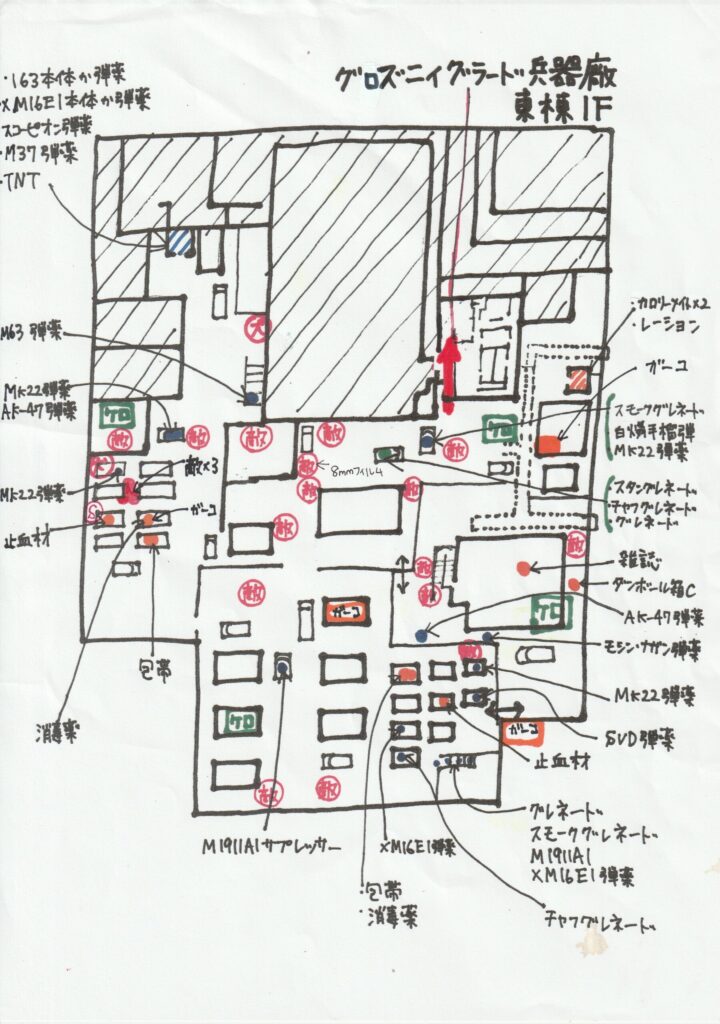 グロズニィグラード兵器廠
東棟1F
・163本体か弾薬
XM16E1本体か弾薬
スコーピオン弾薬
・M37弾薬
・TNT
犬
・カロリーメイト×2
・レーション
M63 弾薬
ガーコ
MK22弾薬
AK-47弾薬
ケロ
敵
敵
敵
敵
敵
ケロ
スモークグレネード
白燐手榴弾
MK22弾薬
犬
敵×3
敵
8mmフィルム
敵
敵
MK22弾薬
スタングレネード
チャフグレネード
グレネード
ガーコ
止血材
敵
敵
雑誌
敵
ダンボール箱C
敵
敵
ガーコ
ケロ
AK-47弾薬
モシン・ナガン弾薬
包帯
敵
MK22弾薬
消毒薬
ケロ
ガーコ
SVD弾薬
止血材
敵
敵
M1911A1サプレッサー
XM16E1弾薬
グレネード
スモークグレネード
M1911A1
XM16E1弾薬
・包帯
・消毒薬
チャフグレネード